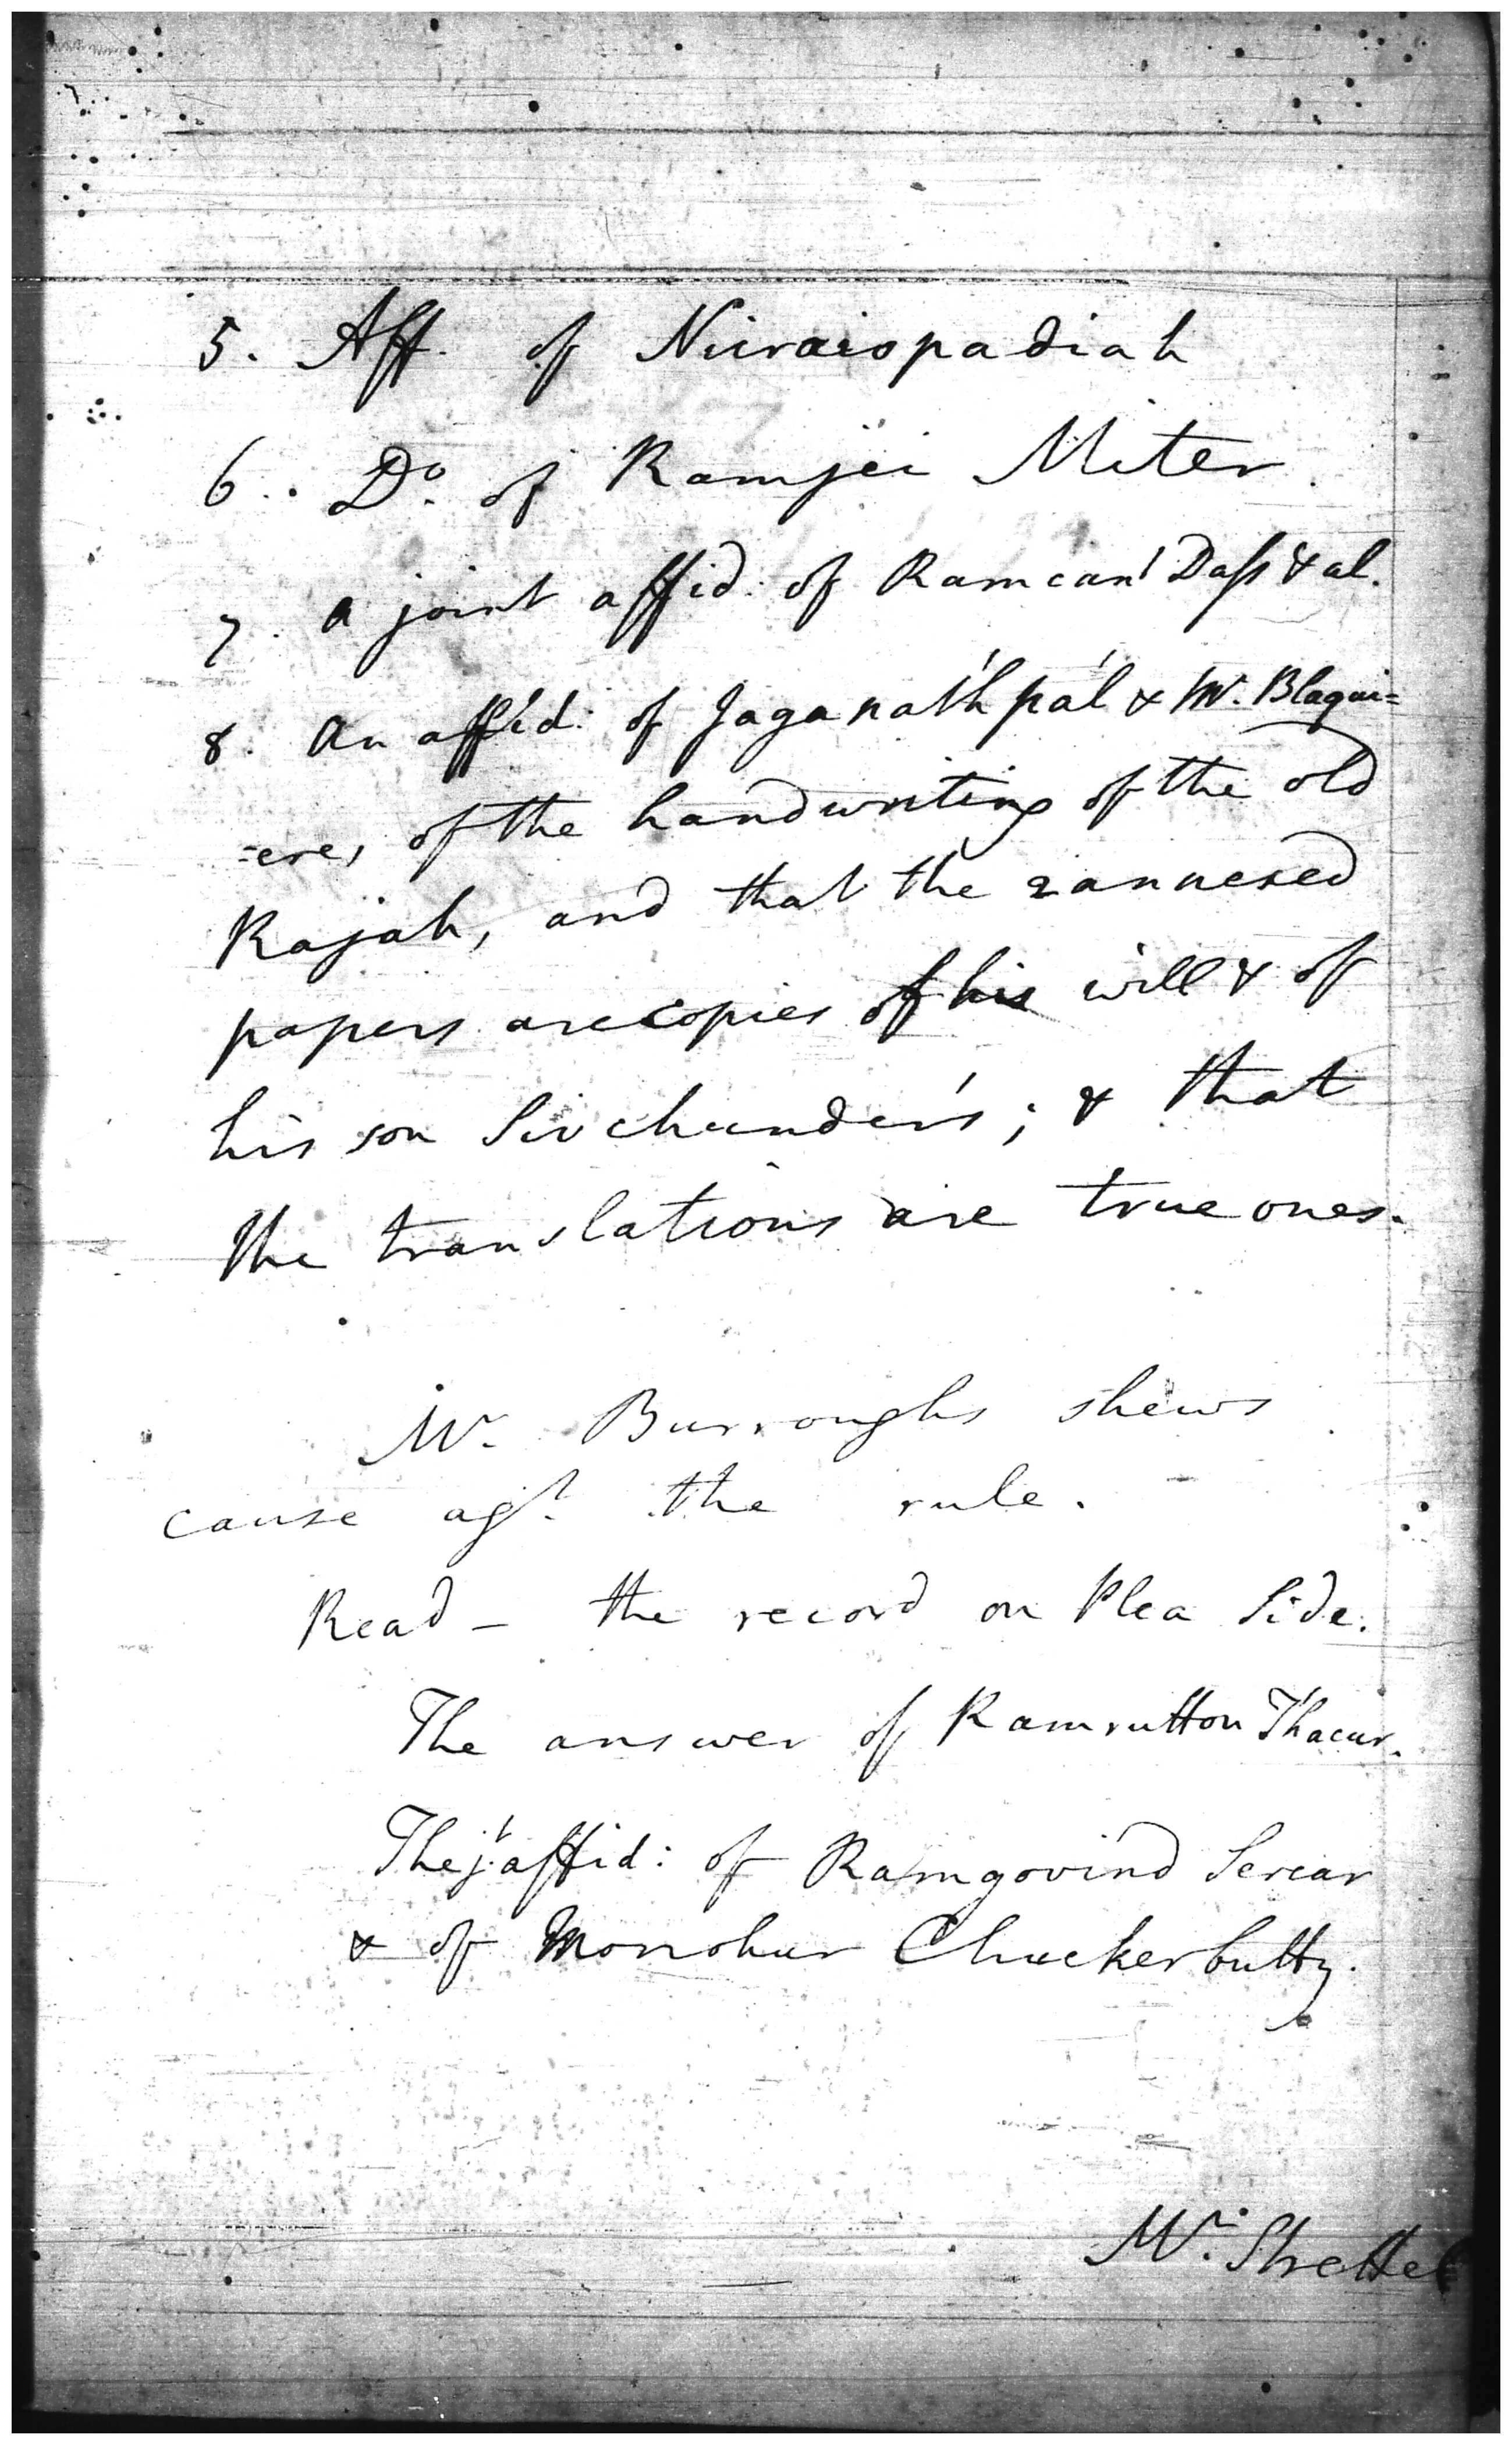 5. Aff. of Nuraispadiah
6. Do. of Ramjei Miter.
7. a joint affid: of Ramcant Dass & al.
8. An affid: of Jaganát'h pál & Mr. Blaqui=
=ere, of the handwriting of the old
Rajah, and that the 2 annexed
papers are copies of his will & of
his son Sivchunder's; & that
the translations are true ones.
Mr. Burroughs shews
cause agt. the rule.
Read - the record on Plea Side.
The answer of Ramrutton Thacur.
The jt. affid: of Ramgovind Sercar
& of Monohur Chuckerbutty.
Mr. Strettel